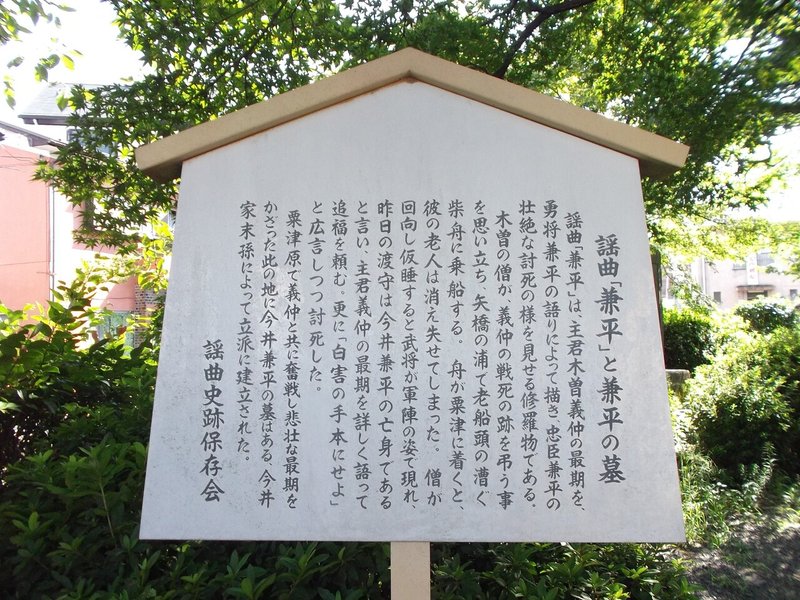 謡曲「兼平」と兼平の墓
謡曲「兼平」は、主君木曽義仲の最期を、
勇将兼平の語りによって描き、忠臣兼平の
壮絶な討死の様を見せる修羅物である。
木曽の僧が、義仲の戦死の跡を弔う事
を思い立ち、矢橋の浦で老船頭の漕ぐ
柴舟に乗船する。舟が粟津に着くと、
彼の老人は消え失せてしまった。僧が
回向し仮睡すると武将が軍陣の姿で現れ、
昨日の渡守は今井兼平の亡身である
と言い、主君義仲の最期を詳しく語って
追福を頼む。更に「自害の手本にせよ」
と広言しつつ討死した。
粟津原で義仲と共に奮戦し悲壮な最期を
かざった此の地に今井兼平の墓はある。今井
家末孫によって立派に建立された。
謡曲史跡保存会